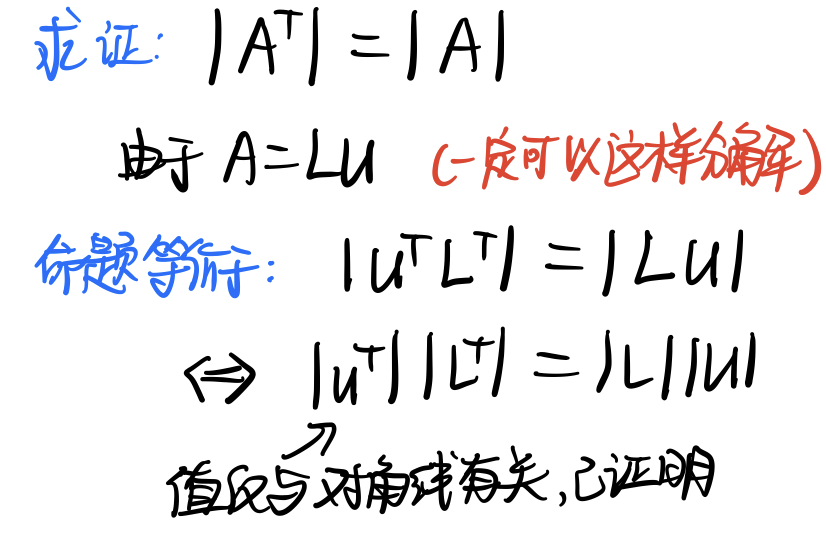 求证: |Aᵀ| = |A|
由于 A=LU (一定可以这样分解)
命题等价于: |UᵀLᵀ| = |LU|
⇔ |Uᵀ||Lᵀ| = |L||U|
值仅与对角线有关,已证明